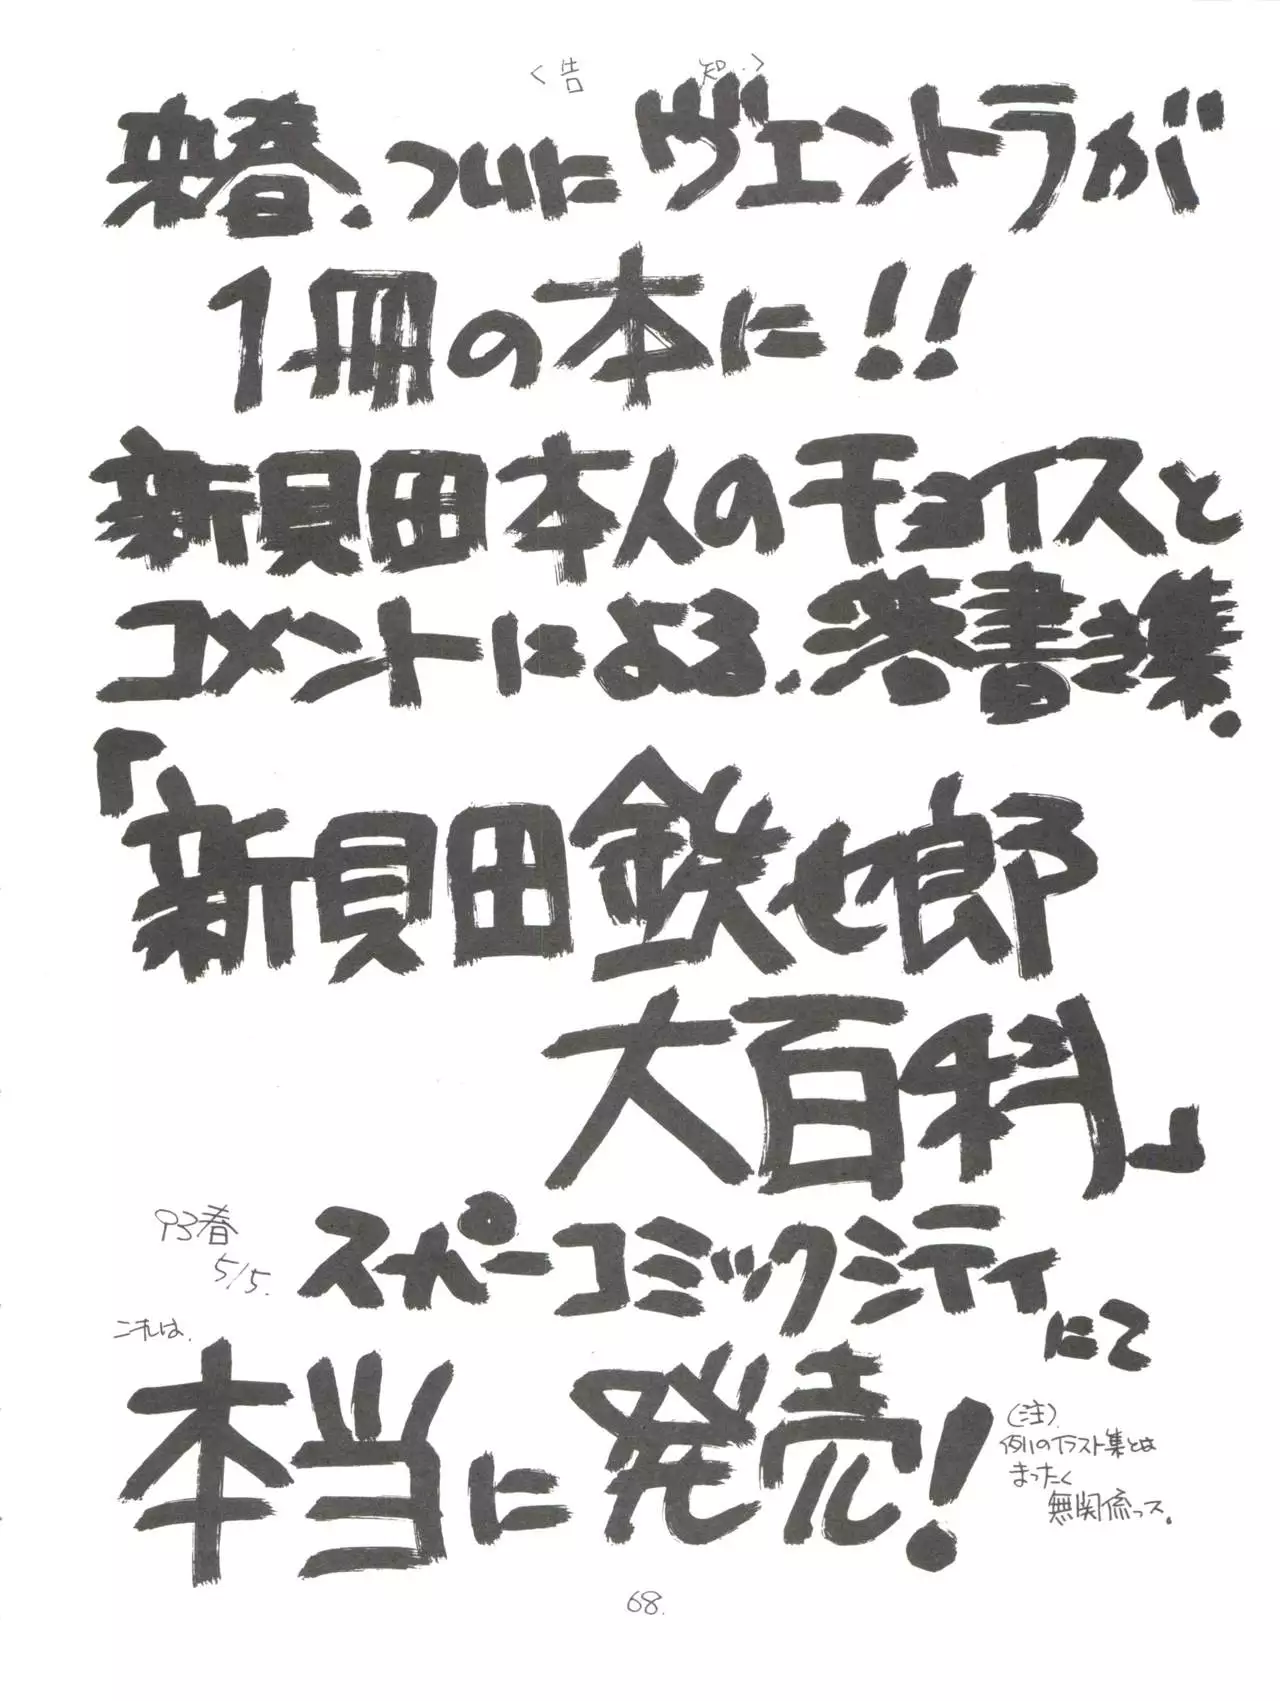 〈告知〉
来春、ついにヴェントラが
1冊の本に!!
新貝田本人のチョイスと
コメントによる、落書き集。
「新貝田鉄也郎
大百科」
93春
5/5.
スーパーコミックシティにて
これは、
本当に発売!
(注)
例のイラスト集とは
まったく
無関係っス。
68.